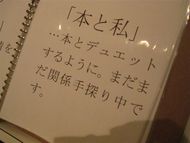 「本と私」
…本とデュエット
するように。まだま
だ関係手探り中で
す。